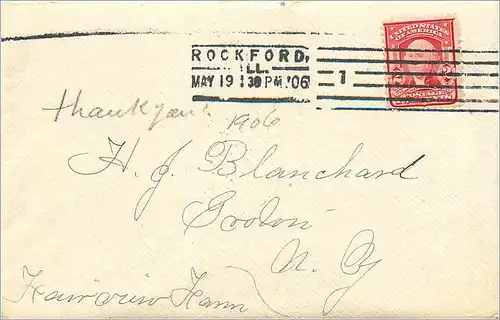 ROCKFORD,
ILL.
MAY 19 1 30 PM '06
1
UNITED STATES
OF AMERICA
POSTAGE
thank you
1906
H. J. Blanchard
Groton
N. Y
Fairview Farm